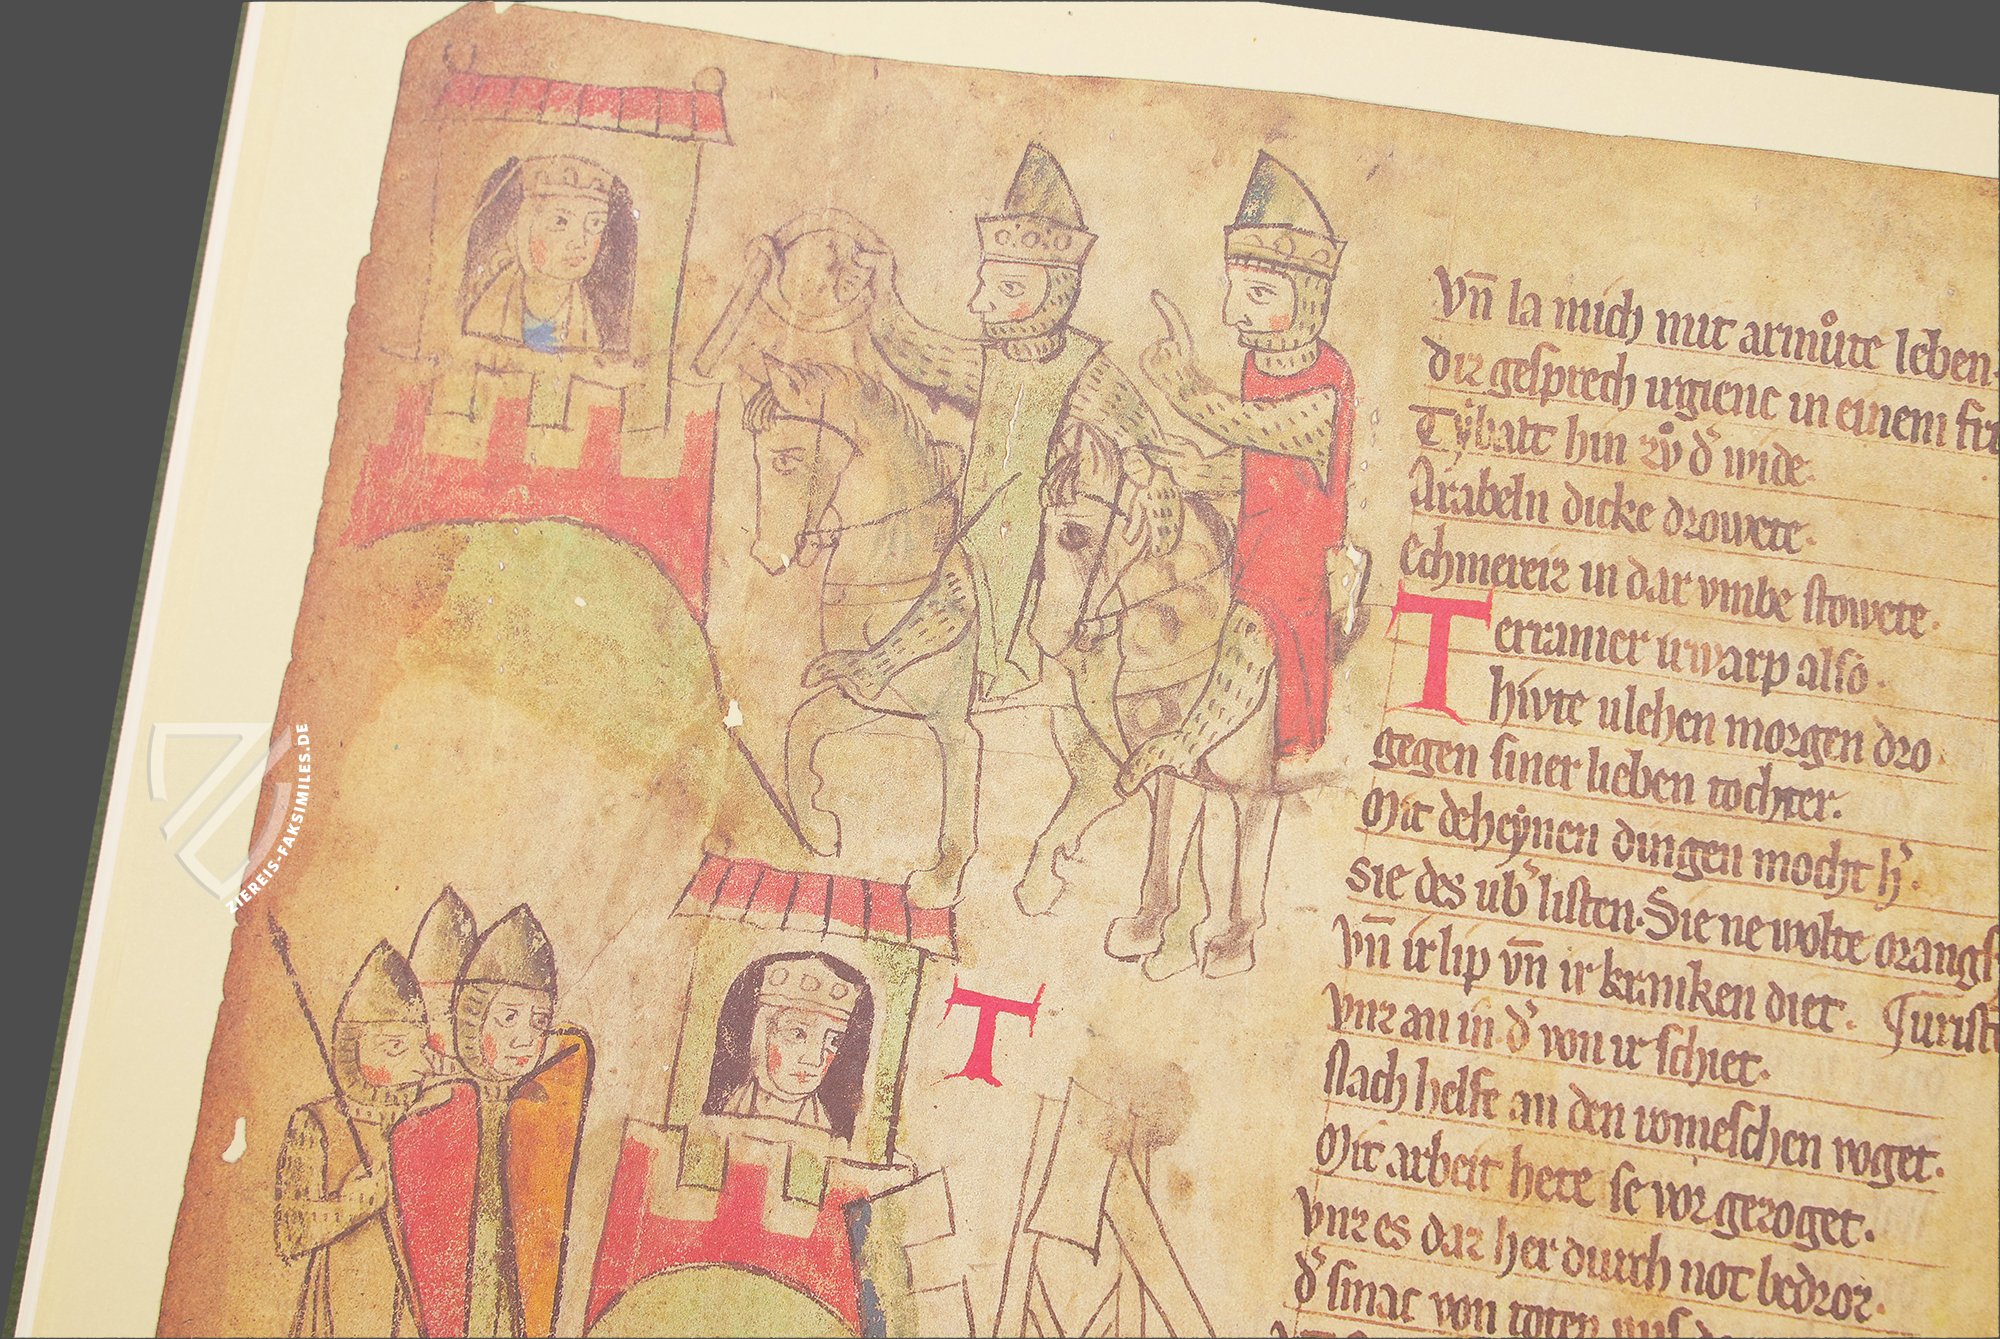 Vn̄ la mich mit armůte leben.
diz gesprech irgienc in einem
Tybalt hin zv̊ d' wide.
Arabeln dicke drowete.
Echmereiz in dar vmbe stowete.
Terramer irwarp also
hivte vlehen morgen dro
gegen siner lieben tochter.
Mit deheynen dingen mocht h'.
sie des ub' listen. Sie ne wolte
Vn̄ ir lip vn̄ ir kranken diet.
vnz an in d' von ir schiet.
T
Nach helfe an den romeschen voget.
Mit arbeit hete se vor gezoget.
vnz es dar her durch not bedroz.
d' smac von toten
ZIEREIS-FAKSIMILES.DE